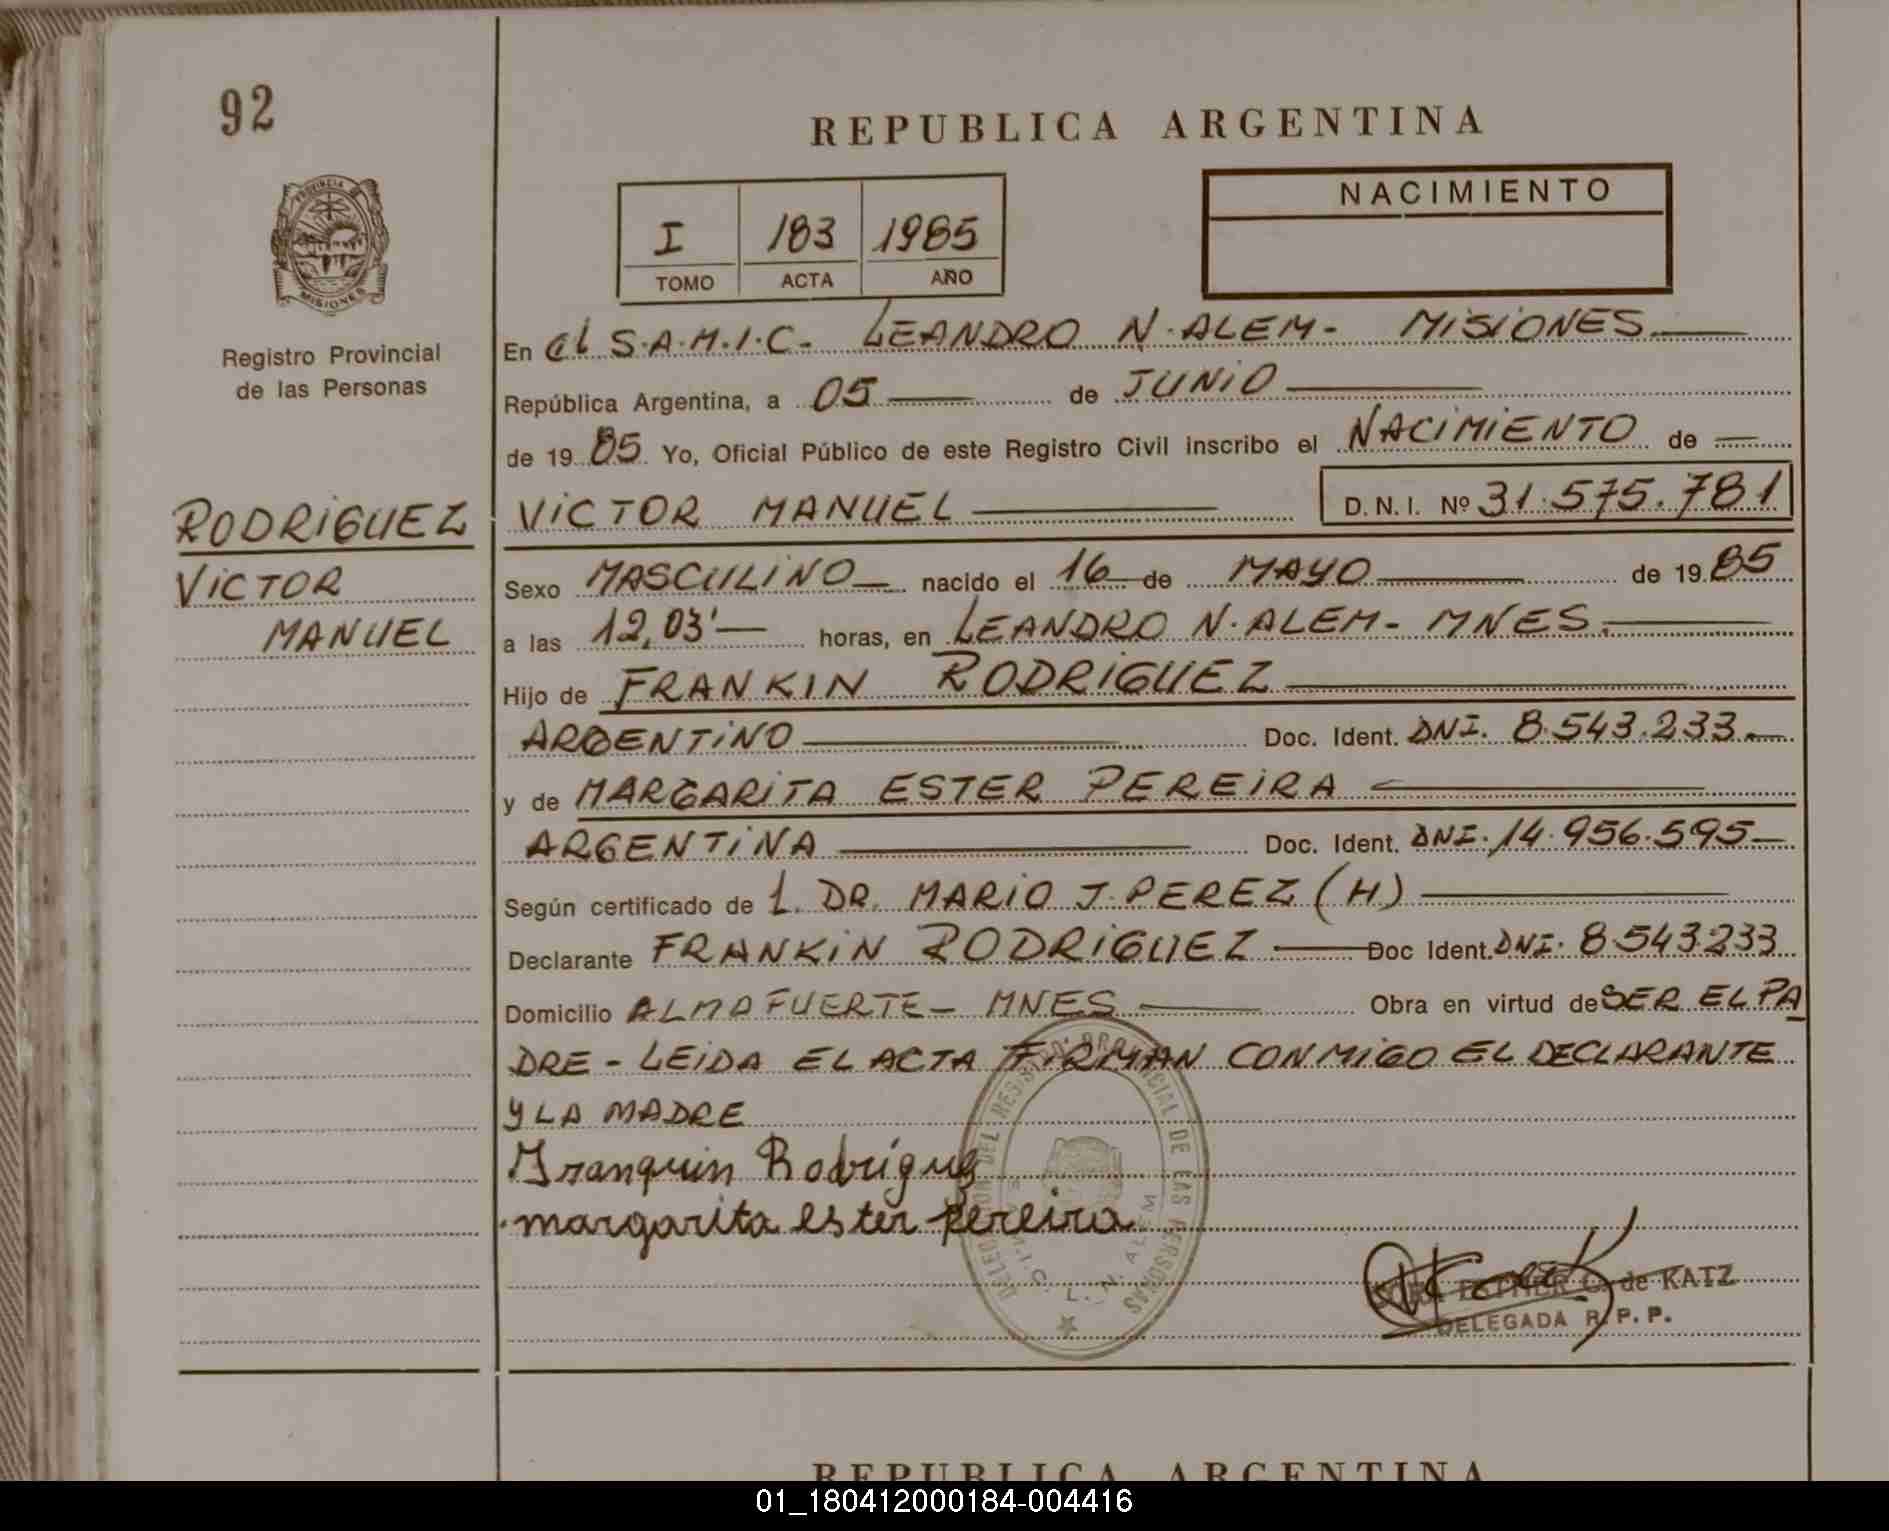 92
REPUBLICA ARGENTINA
PROVINCIA DE
MISIONES
Registro Provincial
de las Personas
I 183 1985
TOMO ACTA AÑO
NACIMIENTO
En el S.A.M.I.C. LEANDRO N. ALEM - MISIONES
República Argentina, a 05 de JUNIO
de 1985 Yo, Oficial Público de este Registro Civil inscribo el NACIMIENTO de
RODRIGUEZ
VICTOR
MANUEL
VICTOR MANUEL D.N.I. Nº 31.575.781
Sexo MASCULINO nacido el 16 de MAYO de 1985
a las 12,03' horas, en LEANDRO N. ALEM - MNES.
Hijo de FRANKIN RODRIGUEZ
ARGENTINO Doc. Ident. DNI. 8.543.233.
y de MARGARITA ESTER PEREIRA
ARGENTINA Doc. Ident. DNI. 14.956.595
Según certificado de 1. DR. MARIO J. PEREZ (H)
Declarante FRANKIN RODRIGUEZ Doc Ident. DNI. 8.543.233
Domicilio ALMAFUERTE - MNES Obra en virtud de SER EL PA
DRE - LEIDA EL ACTA FIRMAN CONMIGO EL DECLARANTE
Y LA MADRE
Franquin Rodrigues
margarita ester Pereira
DELEGACION DEL REGISTRO PROVINCIAL DE LAS PERSONAS
L. N. ALEM
ESTHER C. de KATZ
DELEGADA R. P. P.
REPUBLICA ARGENTINA
01_180412000184-004416